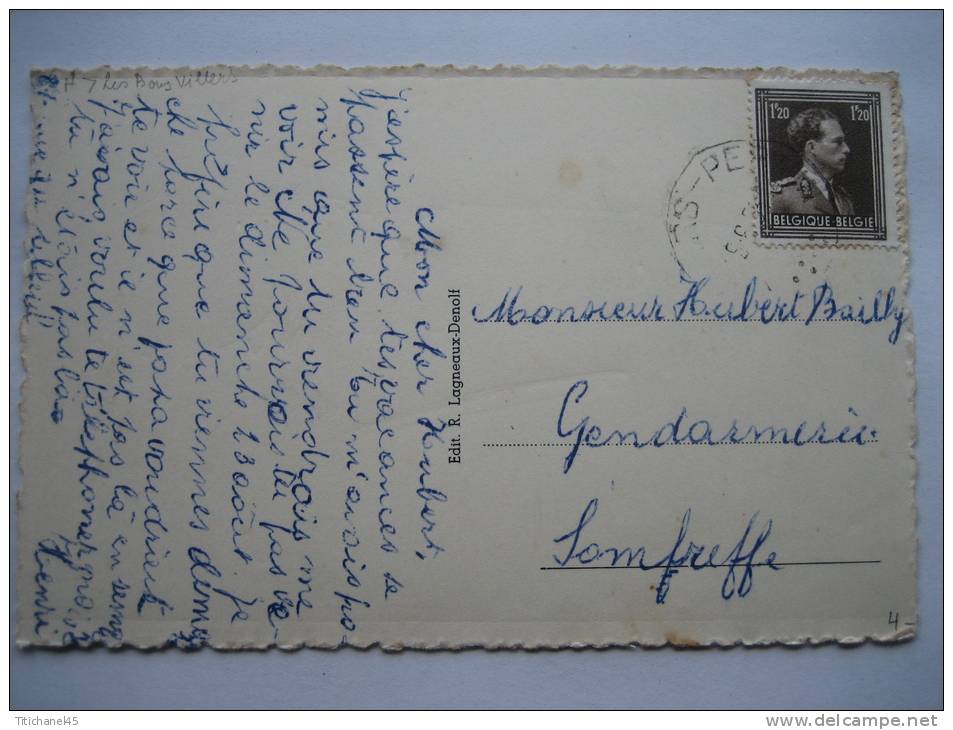 H 7 Les Bons Villers
Mon cher Hubert,
J'espère que tes vacances se
passent bien tu m'avais pro-
mis que tu viendrais me
voir. Ne pourrais tu pas ve-
nir le dimanche 23 août. Je
préfère que tu viennes diman
che parce que papa voudrait
te voir et il n'est pas là en semai
J'avais voulu te téléphoner mais
tu n'étais pas là.
Henri
Edit. R. Lagneaux-Denolf
1F20 1F20
BELGIQUE-BELGIE
RS-PE
Monsieur Hubert Bailly
Gendarmerie
Sombreffe
4-
Ttichane45
www.delcampe.net